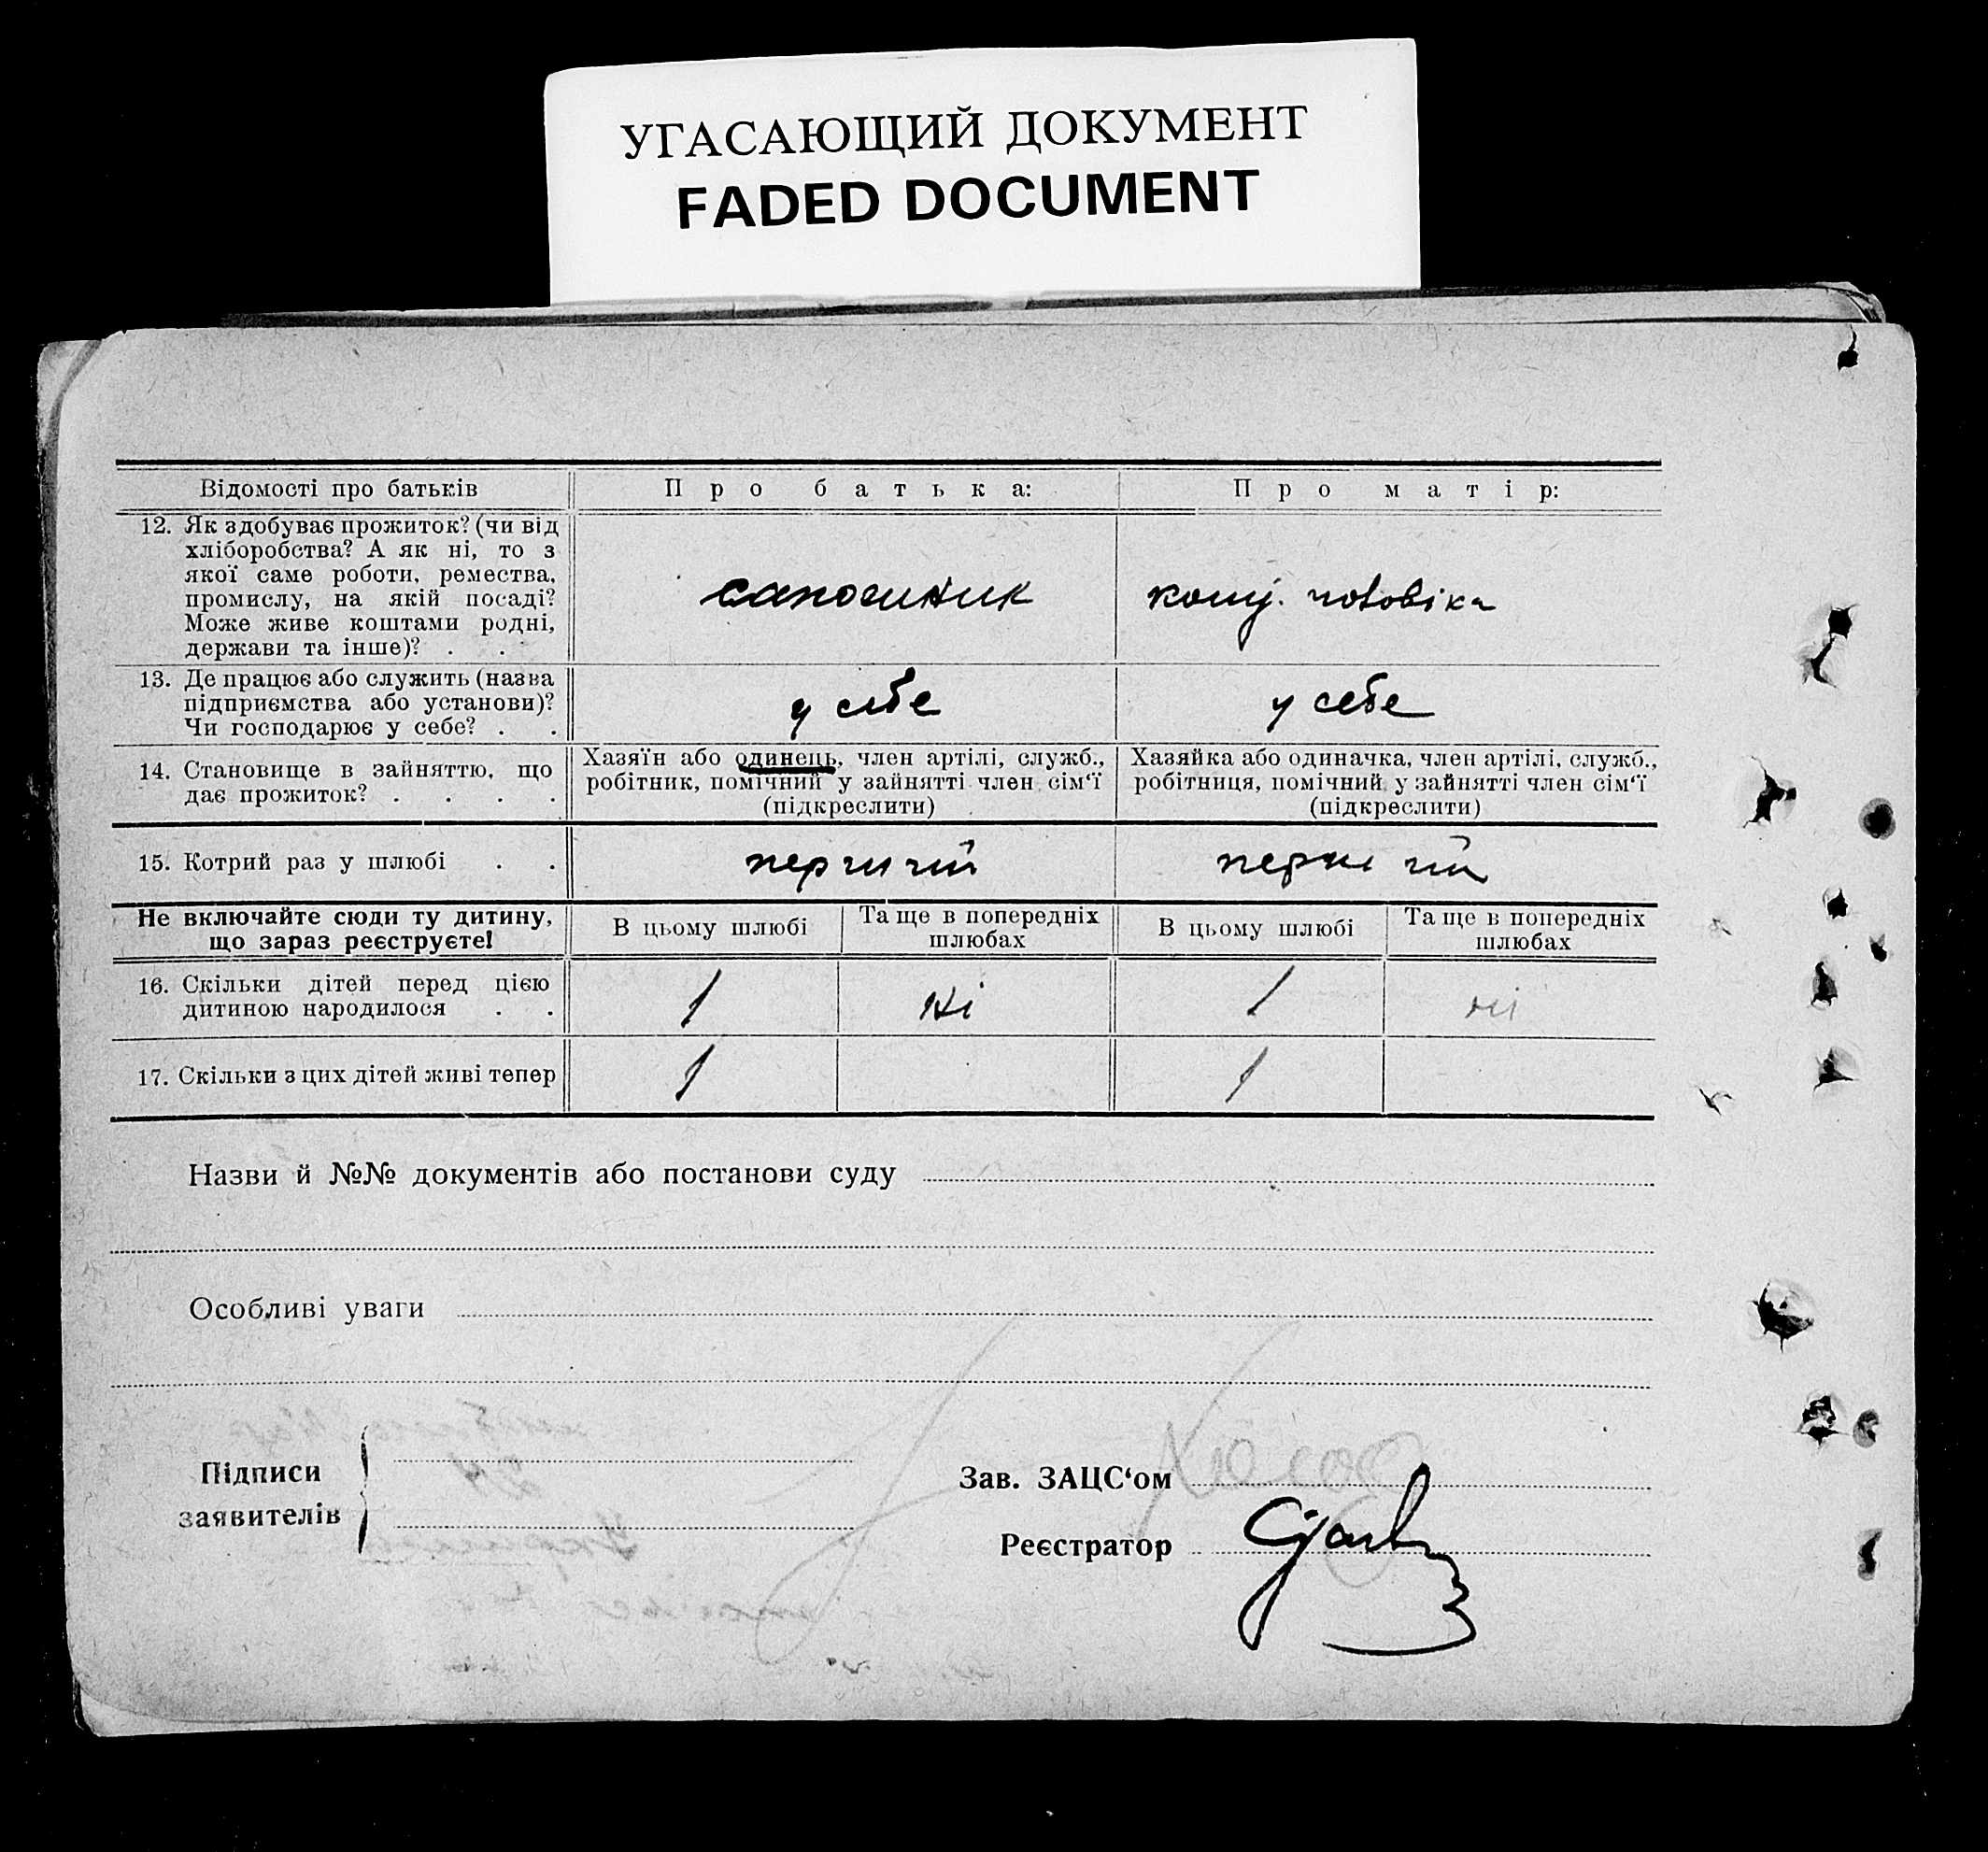 УГАСАЮЩИЙ ДОКУМЕНТ
FADED DOCUMENT
Відомості про батьків
Про батька:
Про матір:
12. Як здобуває прожиток? (чи від
хліборобства? А як ні, то з
якої саме роботи, ремества,
промислу, на якій посаді?
Може живе коштами родні,
держави та інше)? . .
сапожник
кошт. чоловіка
13. Де працює або служить (назва
підприємства або установи)?
Чи господарює у себе? . .
у себе
у себе
14. Становище в зайняттю, що
дає прожиток? . . . .
Хазяїн або одинець, член артілі, служб.,
робітник, помічний у зайнятті член сім‘ї
(підкреслити)
Хазяйка або одиначка, член артілі, служб.,
робітниця, помічний у зайнятті член сім‘ї
(підкреслити)
15. Котрий раз у шлюбі . .
перший
перший
Не включайте сюди ту дитину,
що зараз реєструєте!
В цьому шлюбі
Та ще в попередніх
шлюбах
В цьому шлюбі
Та ще в попередніх
шлюбах
16. Скільки дітей перед цією
дитиною народилося . .
1
ні
1
ні
17. Скільки з цих дітей живі тепер
1
1
Назви й №№ документів або постанови суду
Особливі уваги
Підписи
заявителів
Зав. ЗАЦС‘ом
Реєстратор